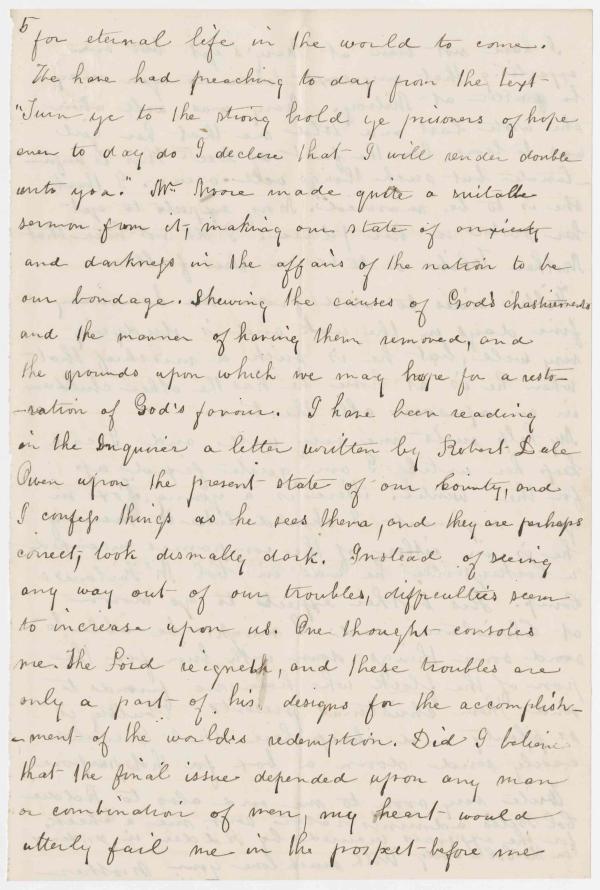 5
for eternal life in the world to come.
We have had preaching to day from the text-
"Turn ye to the strong hold ye prisoners of hope
even to day do I declare that I will render double
unto you." Mr. Moore made quite a suitable
sermon from it, making our state of anxiety
and darkness in the affairs of the nation to be
our bondage. Shewing the causes of God's chastisements
and the manner of having them removed, and
the grounds upon which we may hope for a resto-
-ration of God's favour. I have been reading
in the Inquirer a letter written by Robert Dale
Owen upon the present state of our County, and
I confess things as he sees them, and they are perhaps
correct, look dismally dark. Instead of seeing
any way out of our troubles, difficulties seem
to increase upon us. One thought consoles
me. The Lord reigneth, and these troubles are
only a part of his designs for the accomplish-
-ment of the world's redemption. Did I believe
that the final issue depended upon any man
or combination of men, my heart would
utterly fail me in the prospect before me